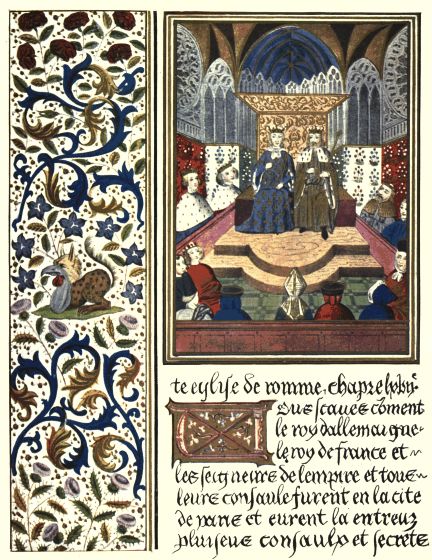 te eglyse de romme, chapre
ous scaues cōment
le roy dallemaigne
le roy de france et
les seigneurs de lempire et tous
leurs consaulx furent en la cite
de paris et eurent la entreux
pluiseurs consaulx et secretz